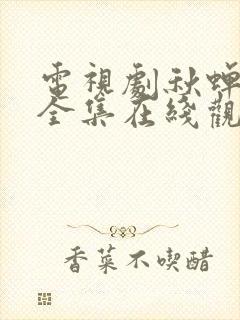 電視劇秋蟬
全集在綫觀
香菜不喫醋